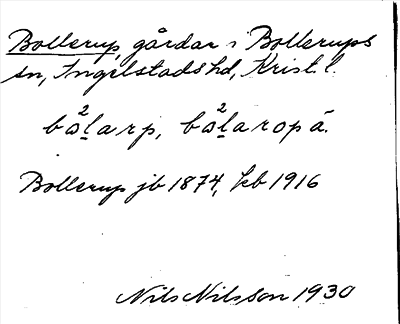 Bollerup, gårdar i Bollerups
sn, Ingelstads hd, Krist. l.
bo²l̠arp, bo²l̠aropá.
Bollerup jb 1874, kb 1916
Nils Nilsson 1930